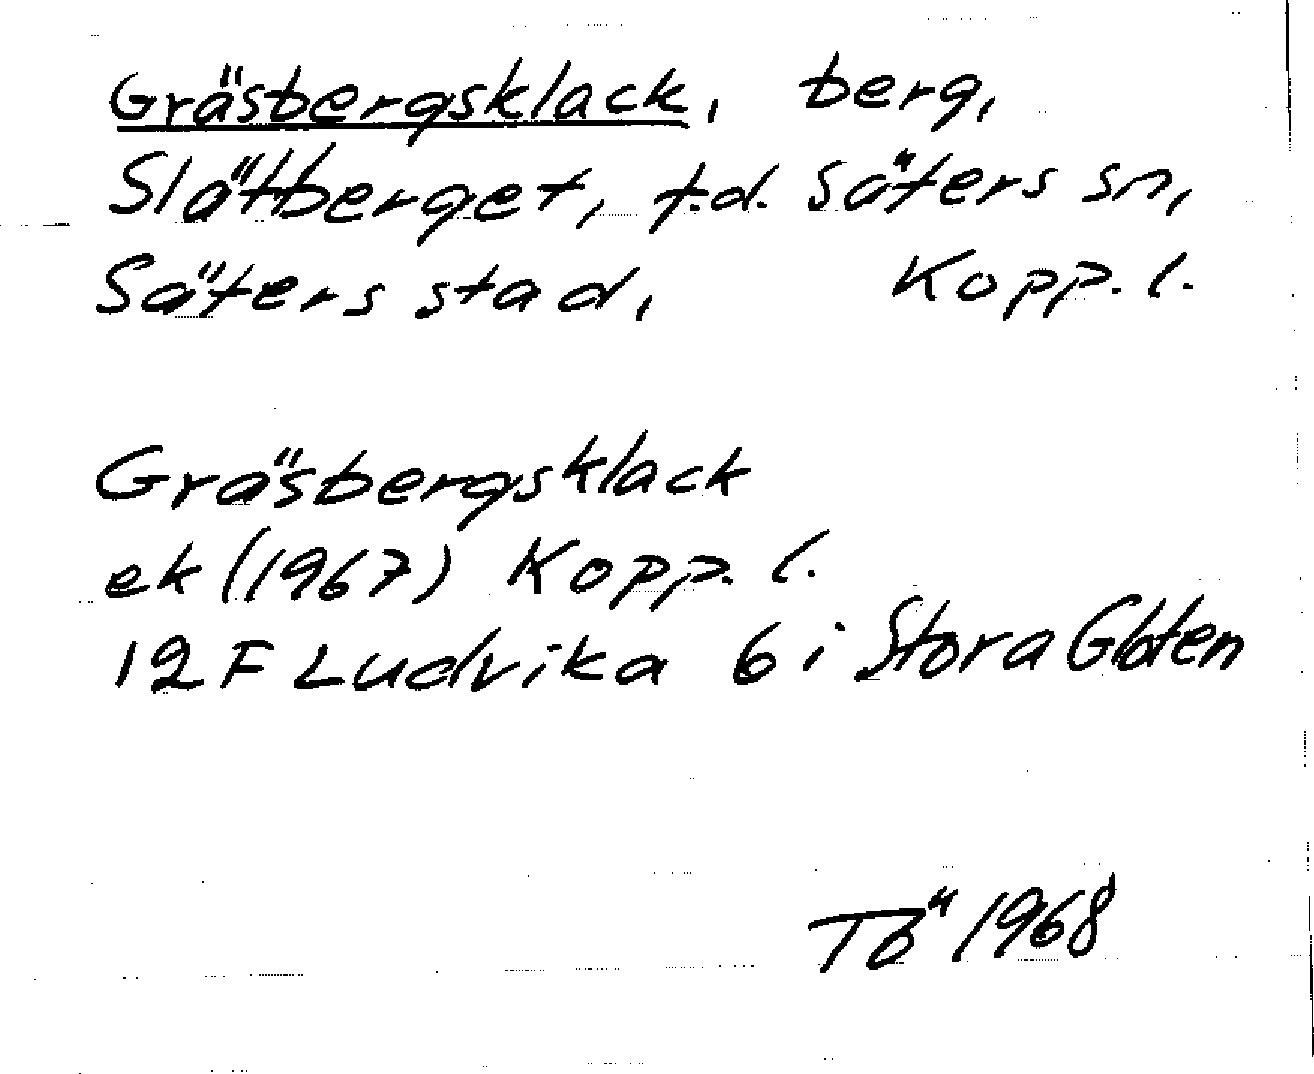 Gräsbergsklack, berg,
Slättberget, f.d. Säters sn,
Säters stad, Kopp. l.
Gräsbergsklack
ek (1967) Kopp. l.
12 F Ludvika 6 i Stora
Tö 1968